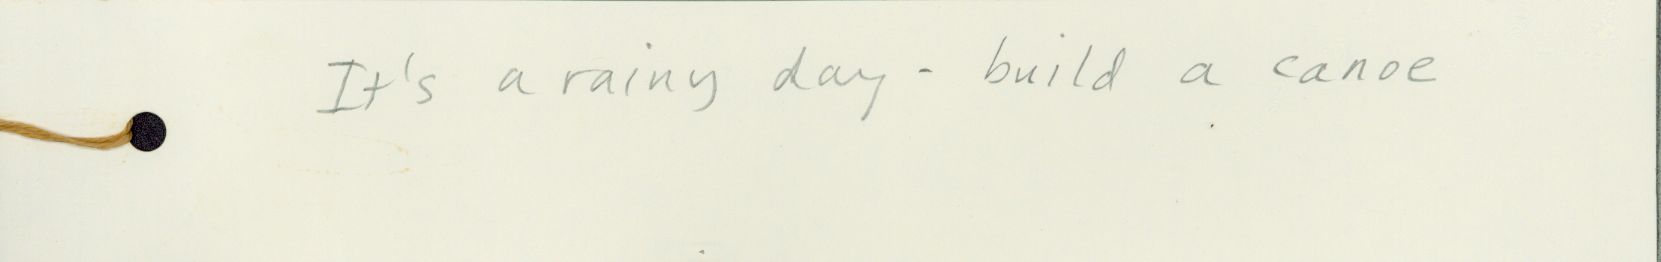 It's a rainy day - build a canoe